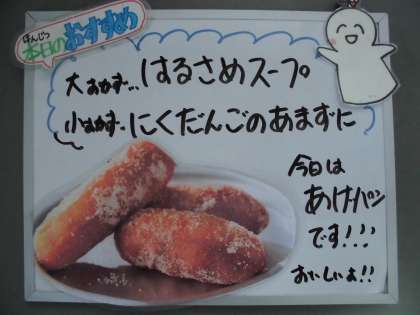 ほんじつ
本日のおすすめ
大おかず…はるさめスープ
小おかず…にくだんごのあまずに
今日は
あげパン
です!!!
おいしいよ!!